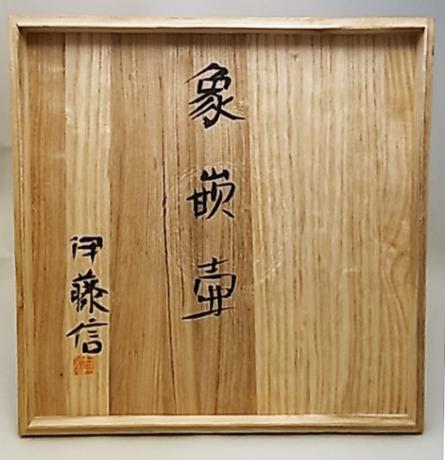 象嵌壷
伊藤信